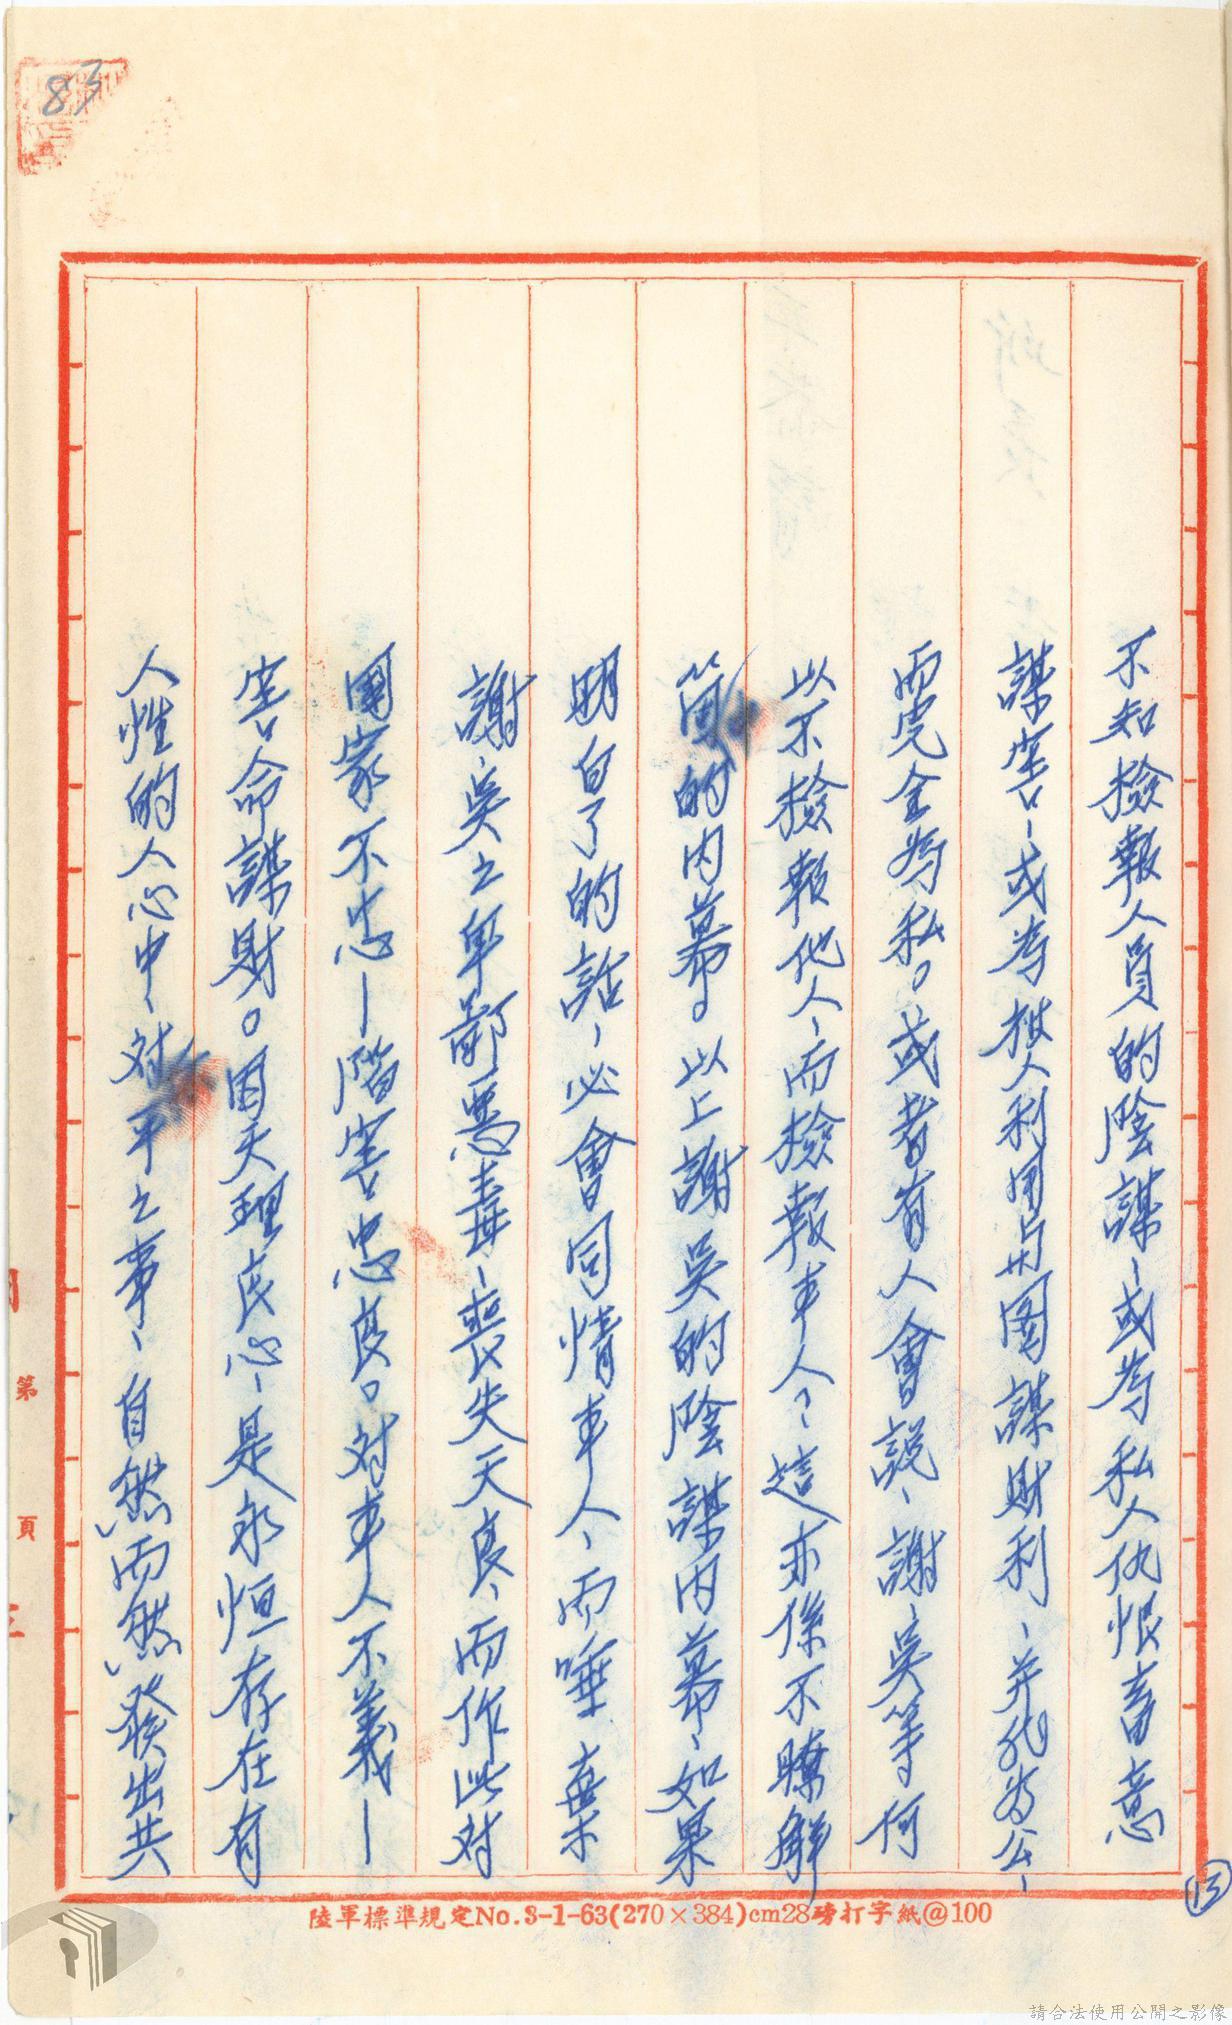 83
不知檢報人員的陰謀、或為私人仇恨蓄意
謀害、或為授人利用与图謀財利、并非為公、
而完全為私。或者有人會說、謝、吳等何
以不檢報他人、而檢報車人?、這亦係不瞭解
的內幕。以上謝吳的陰謀內幕、如果
明白了的話、必會同情車人、而唾棄
謝、吳之卑鄙惡毒、喪失天良、而作此对
國家不忠—陷害忠良。对車人不義—
害命謀財。因天理良心、是永恒存在有
人性的人心中、对不平之事、自然而然發出共
13
第 頁
陸軍標準規定No.3-1-63(270×384)cm28磅打字紙@100
請合法使用公開之影像